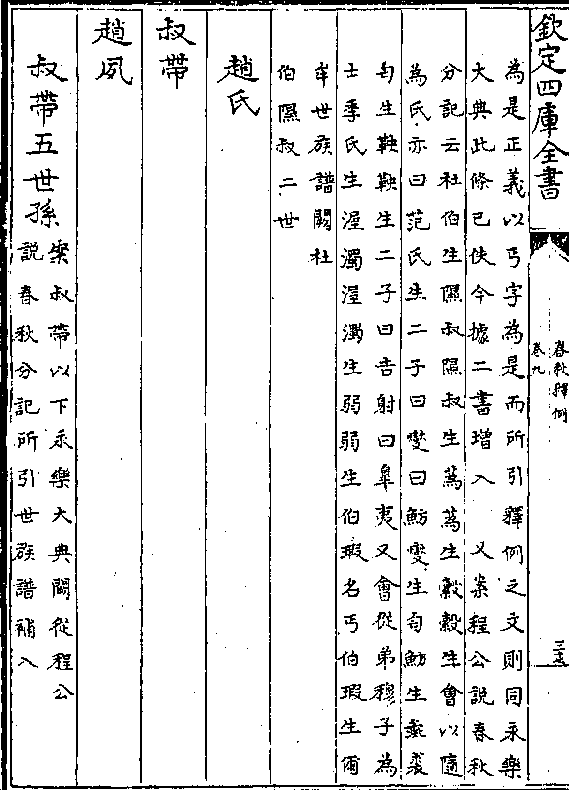 欽定四庫全書
春秋釋例
卷九
為是正義以丐字為是而所引釋例之文則同永樂
大典此條已佚今據二書增入　又案程公說春秋
分記云杜伯生隰叔隰叔生蒍蒍生縠縠生會以隨
為氏亦曰范氏生二子曰燮曰魴燮生匄魴生㲋裘
匄生鞅鞅生二子曰吉射曰臯夷又會從弟穆子為
士季氏生渥濁渥濁生弱弱生伯瑕名丐伯瑕生彌
牟世族譜闕杜
伯隰叔二世
趙氏
叔帶
趙夙
叔帶五世孫
案叔帶以下永樂大典闕從程公
說春秋分記所引世族譜補入